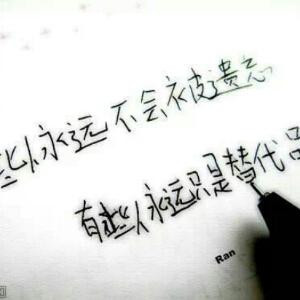 些人永远不会被遗忘
有些人永远只是替代品
Ran